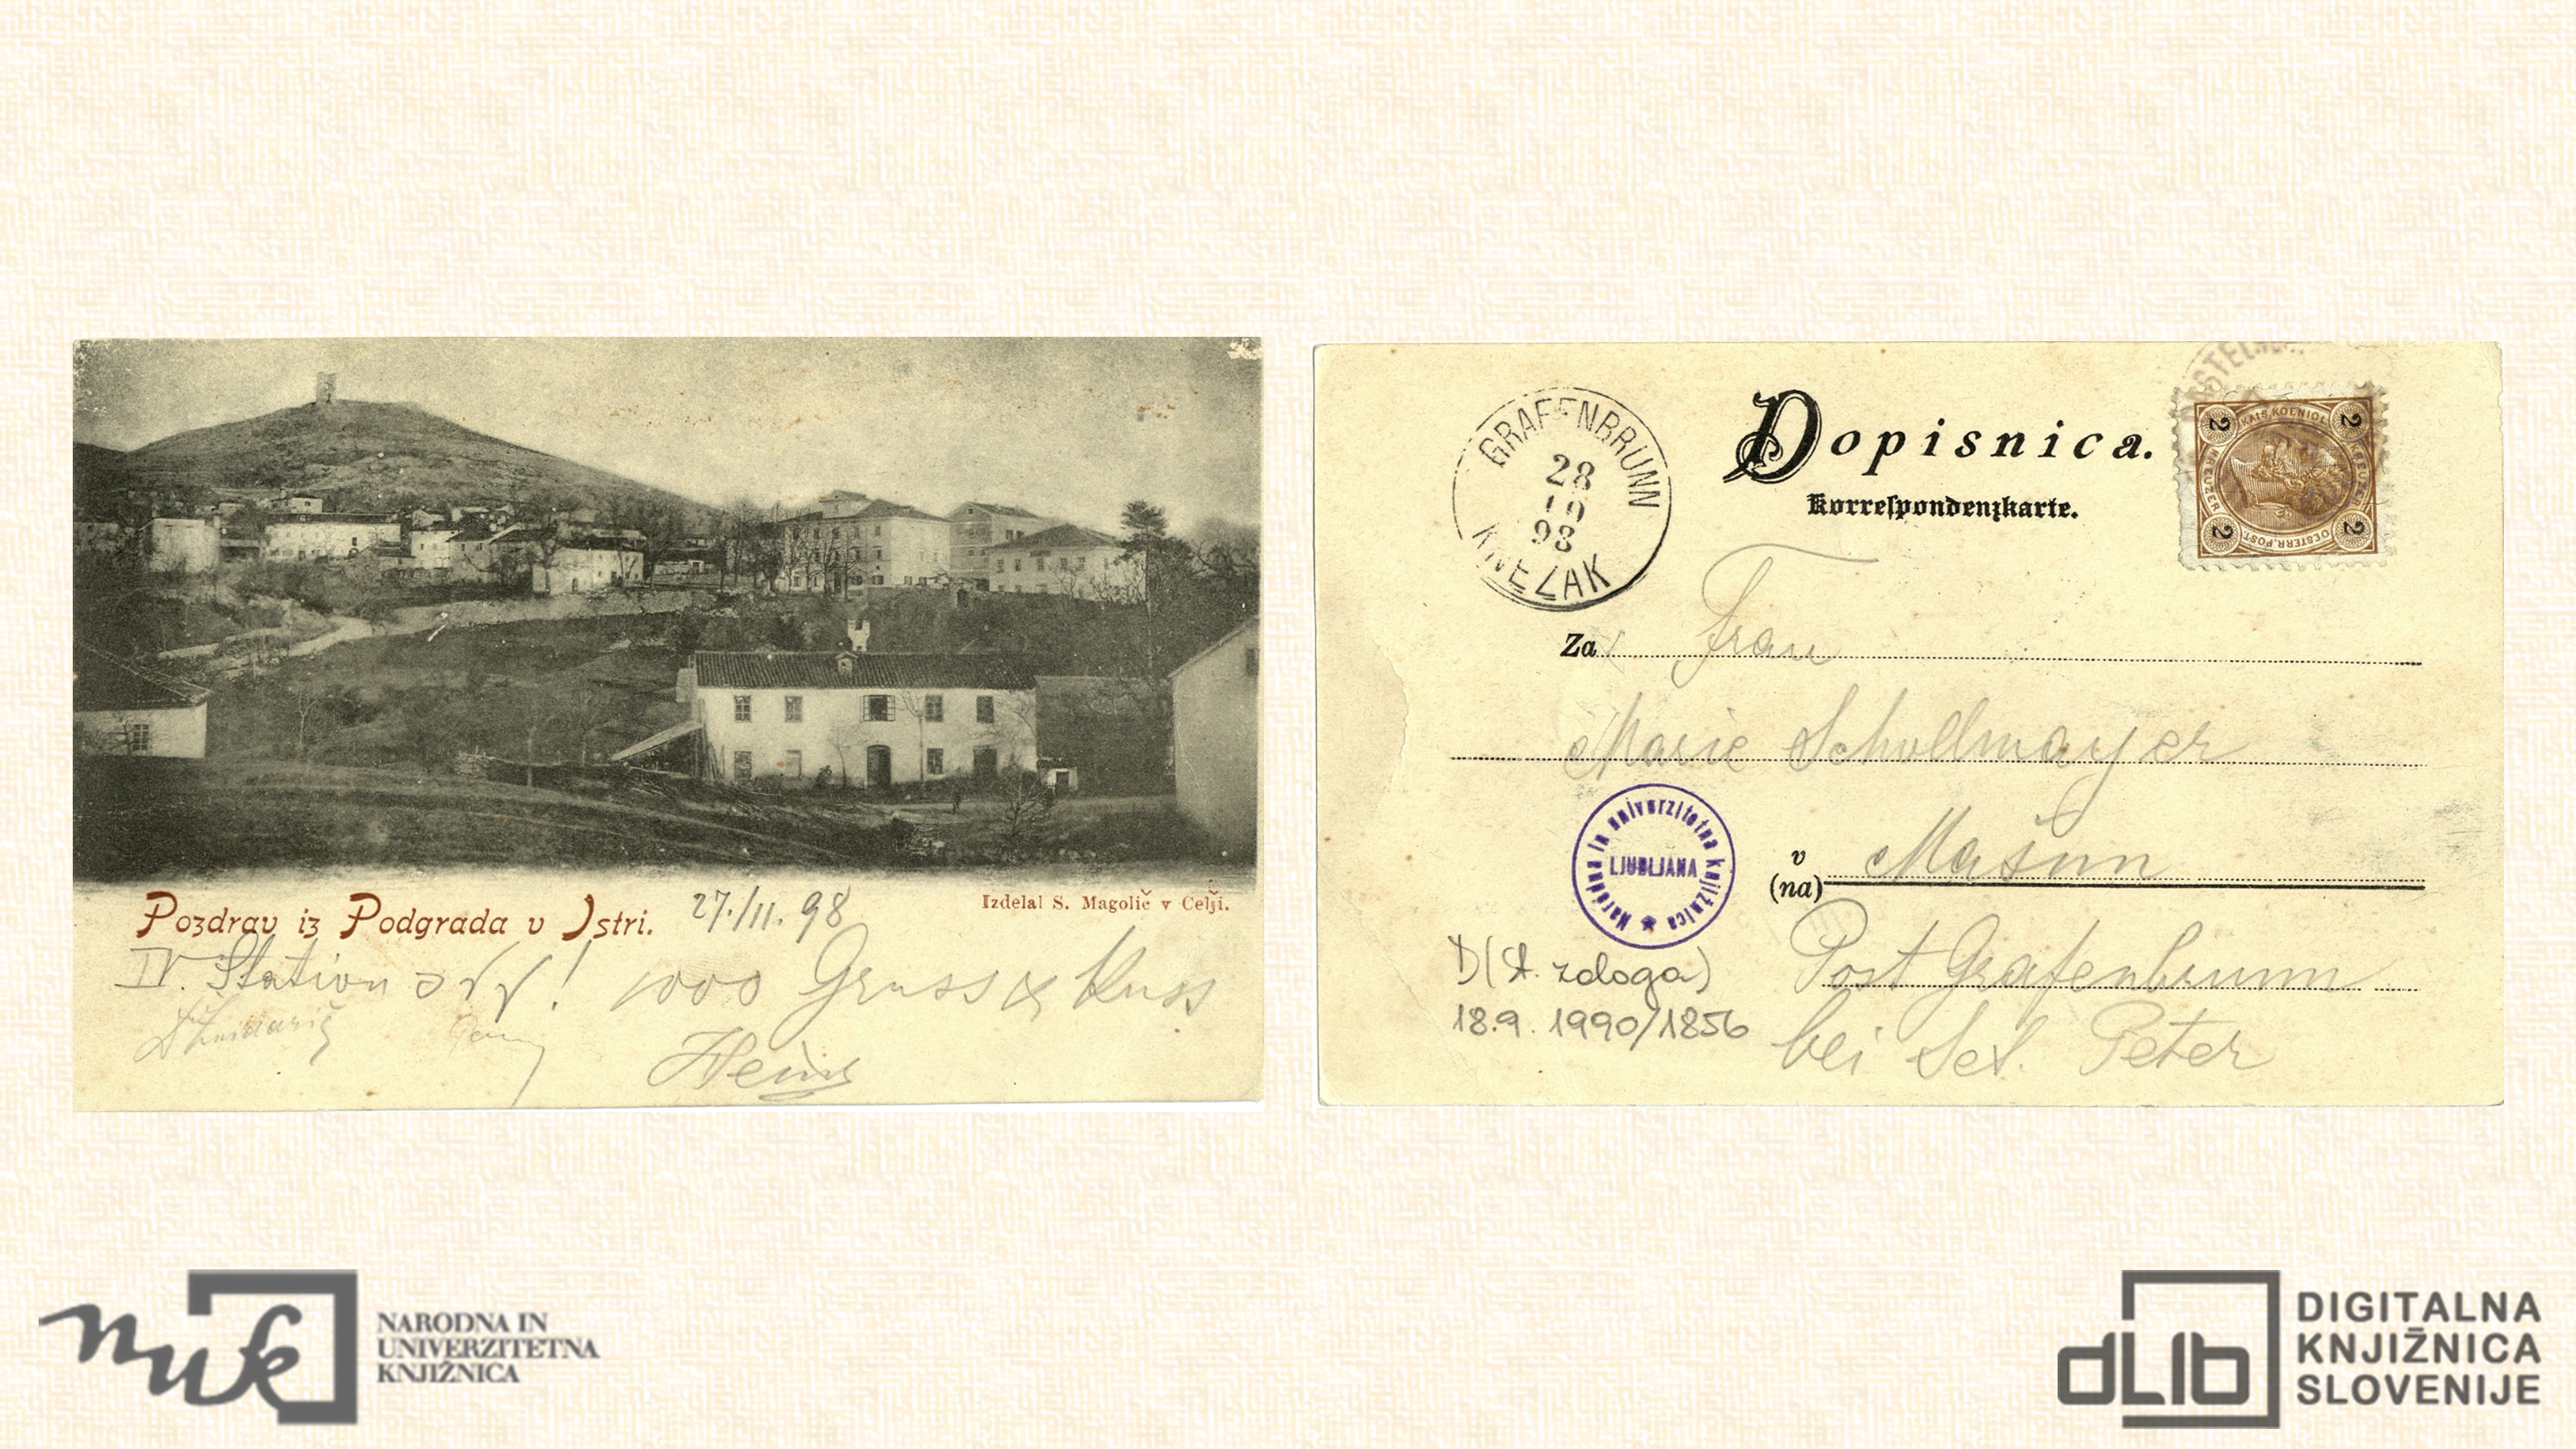 Pozdrav iz Podgrada v Istri. 27./11. 98
Izdelal S. Magolič v Celji.
IV. Station ! 1000 Gruss & Kuss
Heinz
GRAFENBRUNN
28
98
KNEŽAK
Dopisnica.
Korrespondenzkarte.
2 KAIS. KOENIGL. 2
KREUZER KREUZER
2 OESTERR. POST. 2
Za Frau
Marie Schollmayer
v (na) Mašun
Post Grafenbrunn
bei Sct. Peter
Narodna in univerzitetna knjižnica
LJUBLJANA
D(st. zaloga)
18.9. 1990/1856
nuk
NARODNA IN
UNIVERZITETNA
KNJIŽNICA
dLib
DIGITALNA
KNJIŽNICA
SLOVENIJE